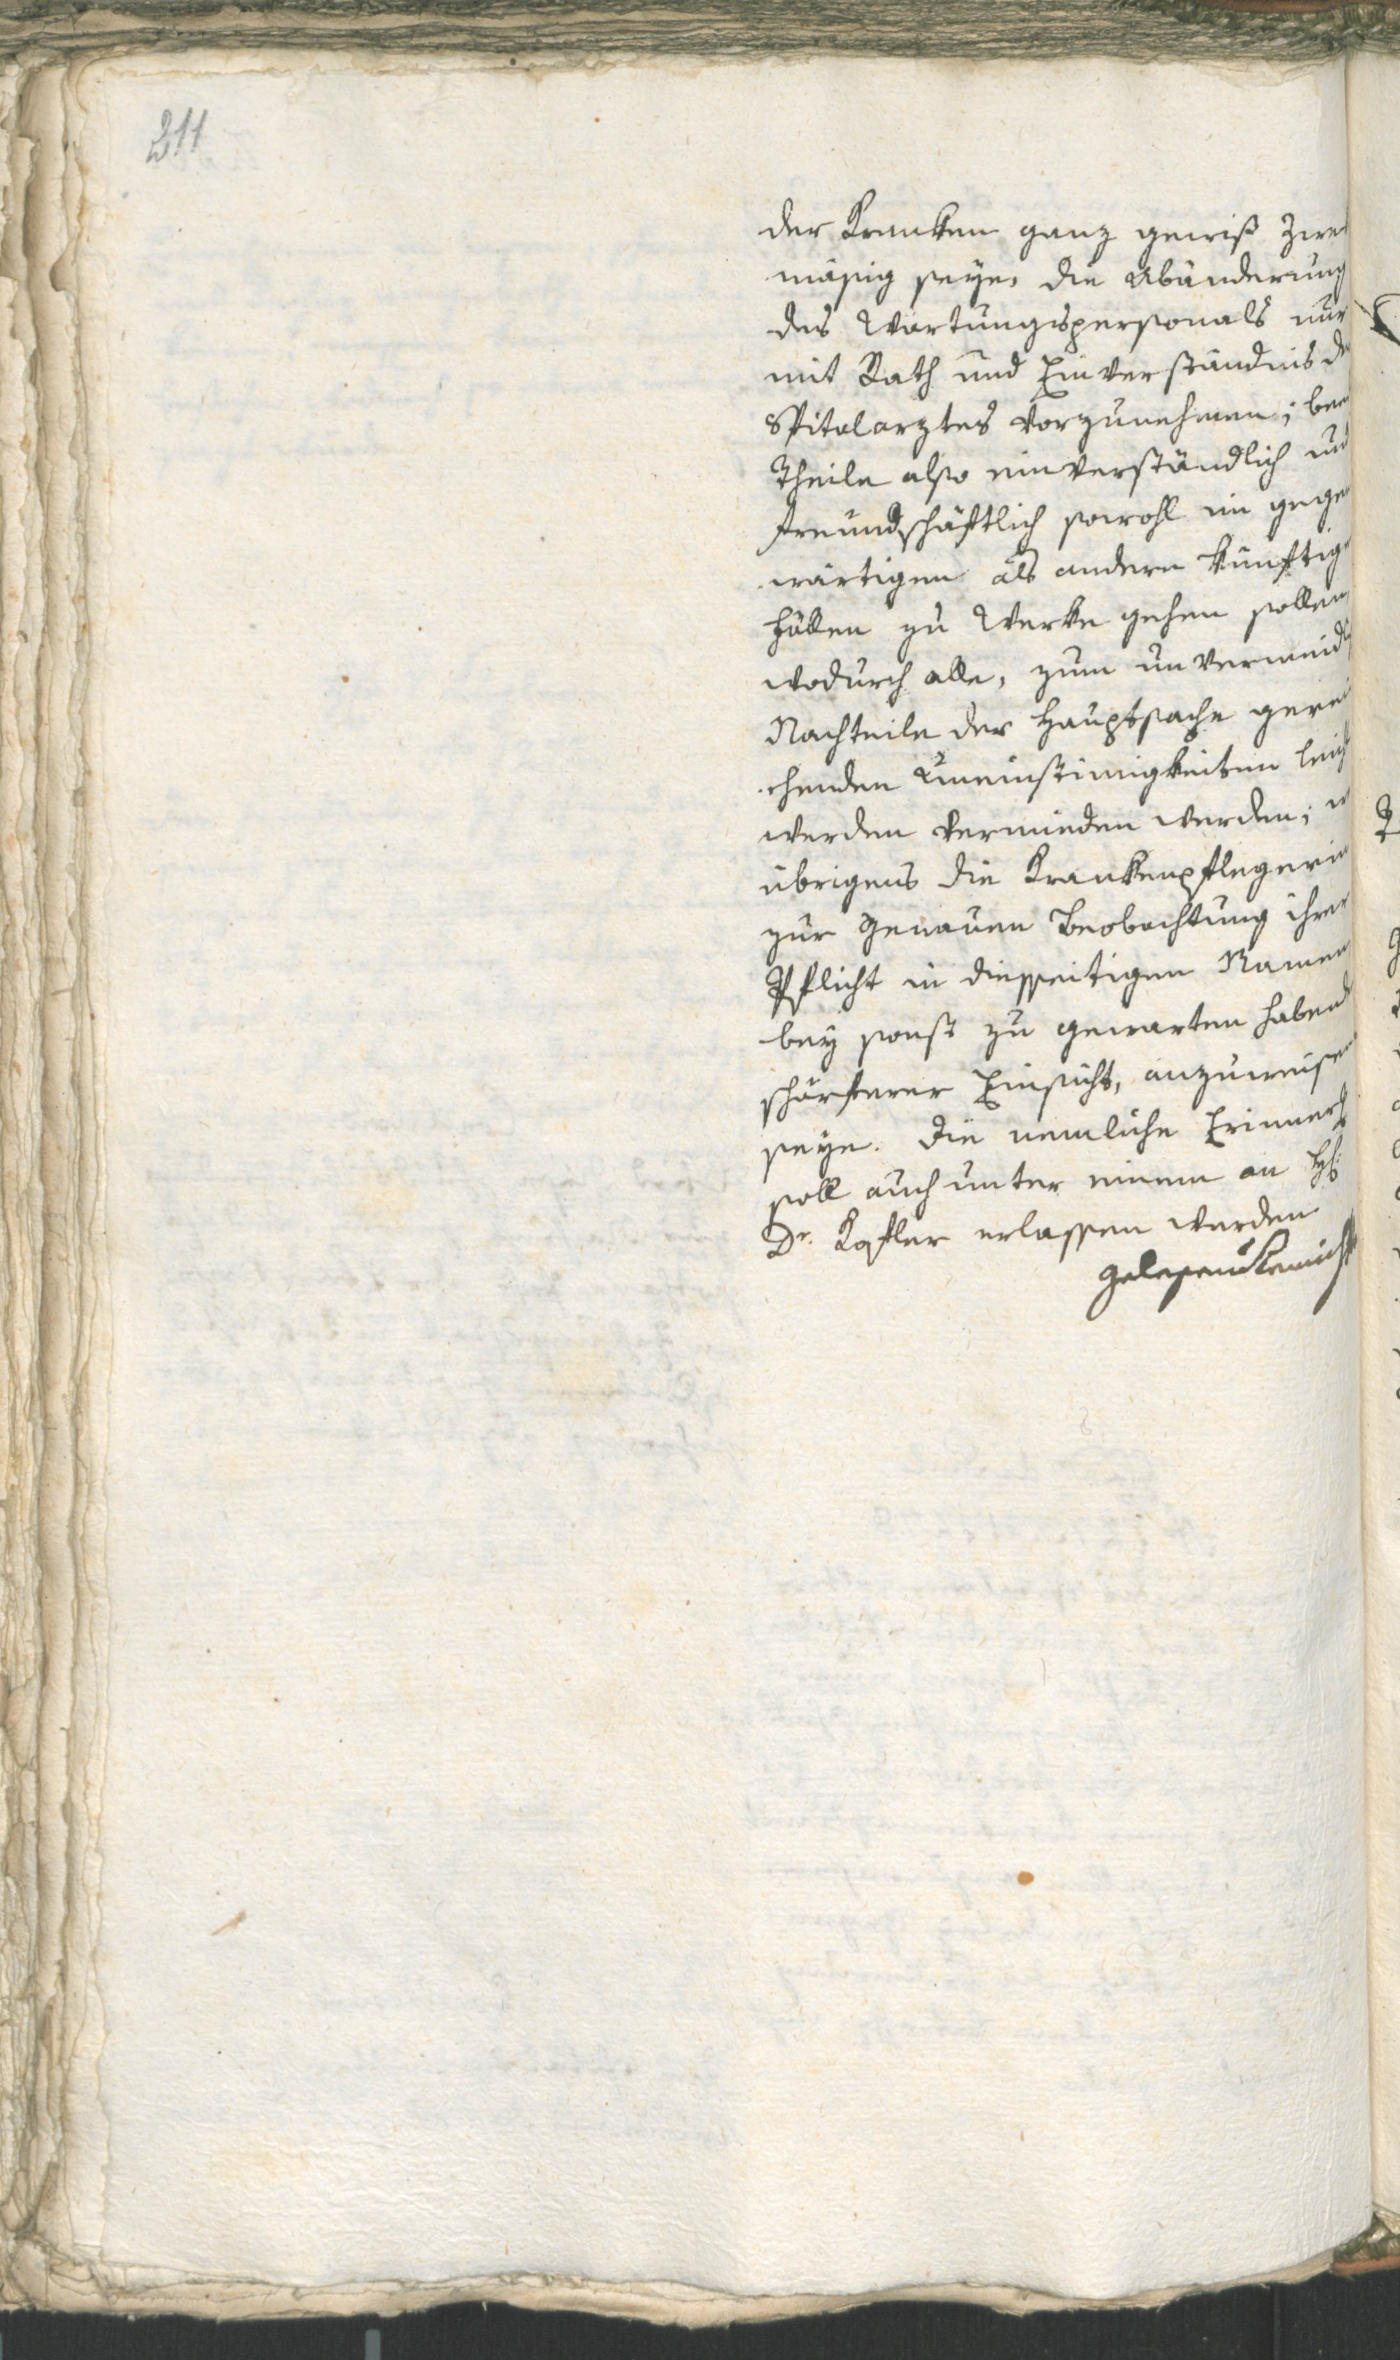 211
der Kranken ganz gewiß Zwek
mäßig seye, die Abänderung
des Wartungspersonals nur
mit Rath und Einverständnis de
Spitalarztes vorzunehmen; bee
Theile also einverständlich und
freundschäftlich sowohl im gegen
wärtigen als andern künftige
Fällen zu Werke gehen sollen,
wodurch alle, zum unvermeidl
Nachteile der Hauptsache gerei
chenden Uneinstimigkeiten leicht
werden vermieden werden; w
übrigens die Krankenpflegerin
zur genauen Beobachtung ihrer
Pflicht in diesseitigen Namen
bey sonst zu gewarten habend
schärferer Einsicht, anzuweisen
seye. Die nemliche Erinner
soll auch unter einem an H:
Dr. Kofler erlassen werden